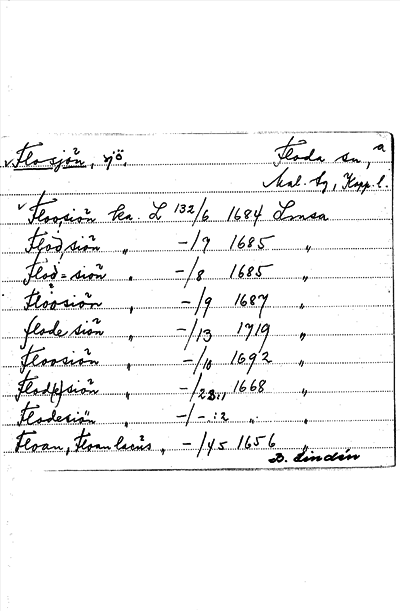 Flosjön, sjö, Floda sn, a
Nal. hg, Kopp. l.
Floosiön ka. L 132/6 1684 Lmsa
Flod, siön " -/7 1685 "
Flod=siön " -/8 1685 "
Floosiön " -/9 1687 "
flode siön " -/13 1719 "
Floosiön " -/10 1692 "
Flod(e)siön " 1668 "
Flodesiön " -/-:2 " "
Floan, Floan lacus " -/45 1656 "
B. Lindén